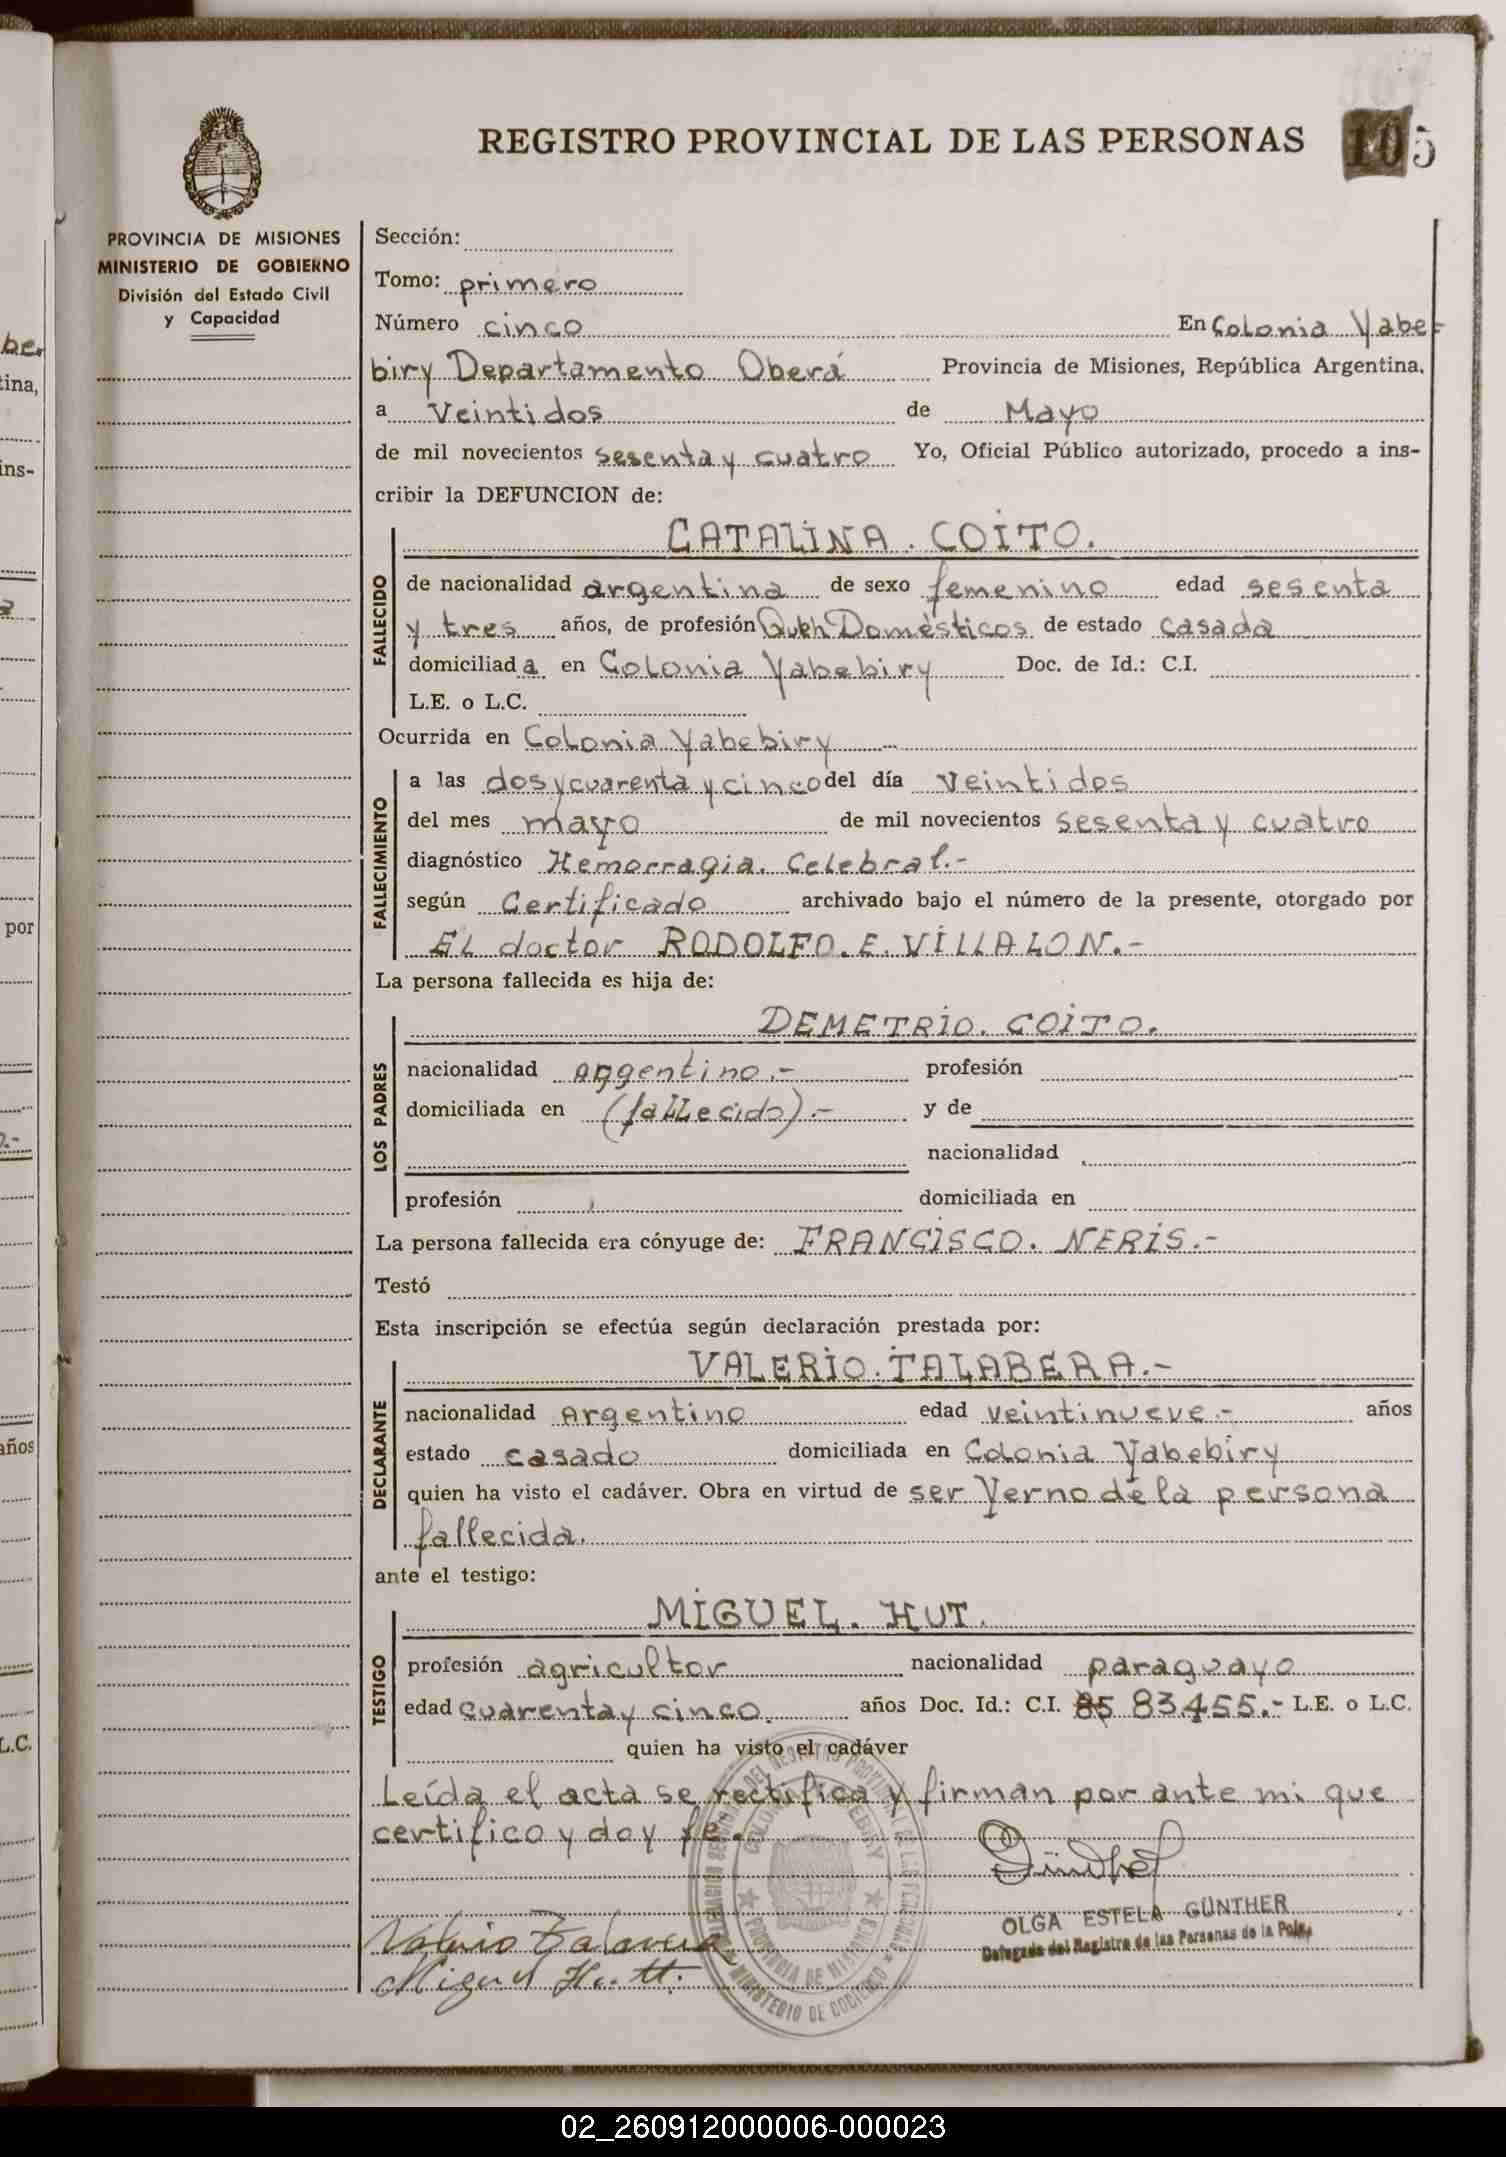 REGISTRO PROVINCIAL DE LAS PERSONAS 105
PROVINCIA DE MISIONES
MINISTERIO DE GOBIERNO
División del Estado Civil
y Capacidad
Sección:
Tomo: primero
Número cinco En Colonia Yabe-
biry Departamento Oberá Provincia de Misiones, República Argentina,
a Veintidos de Mayo
de mil novecientos sesenta y cuatro Yo, Oficial Público autorizado, procedo a ins-
cribir la DEFUNCION de:
CATALINA. COITO.
FALLECIDO
de nacionalidad argentina de sexo femenino edad sesenta
y tres años, de profesión Domésticos de estado casada
domiciliada en Colonia Yabebiry Doc. de Id.: C.I.
L.E. o L.C.
Ocurrida en Colonia Yabebiry
FALLECIMIENTO
a las dos y cuarenta y cinco del día Veintidos
del mes mayo de mil novecientos sesenta y cuatro
diagnóstico Hemorragia. Celebral.-
según Certificado archivado bajo el número de la presente, otorgado por
El doctor RODOLFO. E. VILLALON.-
La persona fallecida es hija de:
DEMETRIO. COITO.
LOS PADRES
nacionalidad Argentino.- profesión
domiciliada en (fallecido).- y de
nacionalidad
profesión domiciliada en
La persona fallecida era cónyuge de: FRANCISCO. NERIS.-
Testó
Esta inscripción se efectúa según declaración prestada por:
VALERIO. TALABERA.-
DECLARANTE
nacionalidad Argentino edad veintinueve.- años
estado casado domiciliada en Colonia Yabebiry
quien ha visto el cadáver. Obra en virtud de ser Yerno de la persona
fallecida.
ante el testigo:
MIGUEL. HUT.
TESTIGO
profesión agricultor nacionalidad paraguayo
edad cuarenta y cinco. años Doc. Id.: C.I. 83.455.- L.E. o L.C.
quien ha visto el cadáver
Leída el acta se rectifica y firman por ante mi que
certifico y doy fe.
Günther
OLGA ESTELA GÜNTHER
Delegada del Registro de las Personas de la Pcia.
Valerio Talavera
Miguel Hutt.
PROVINCIA DE MISIONES
MINISTERIO DE GOBIERNO
ber
tina,
ins-
por
años
L.C.
02_260912000006-000023